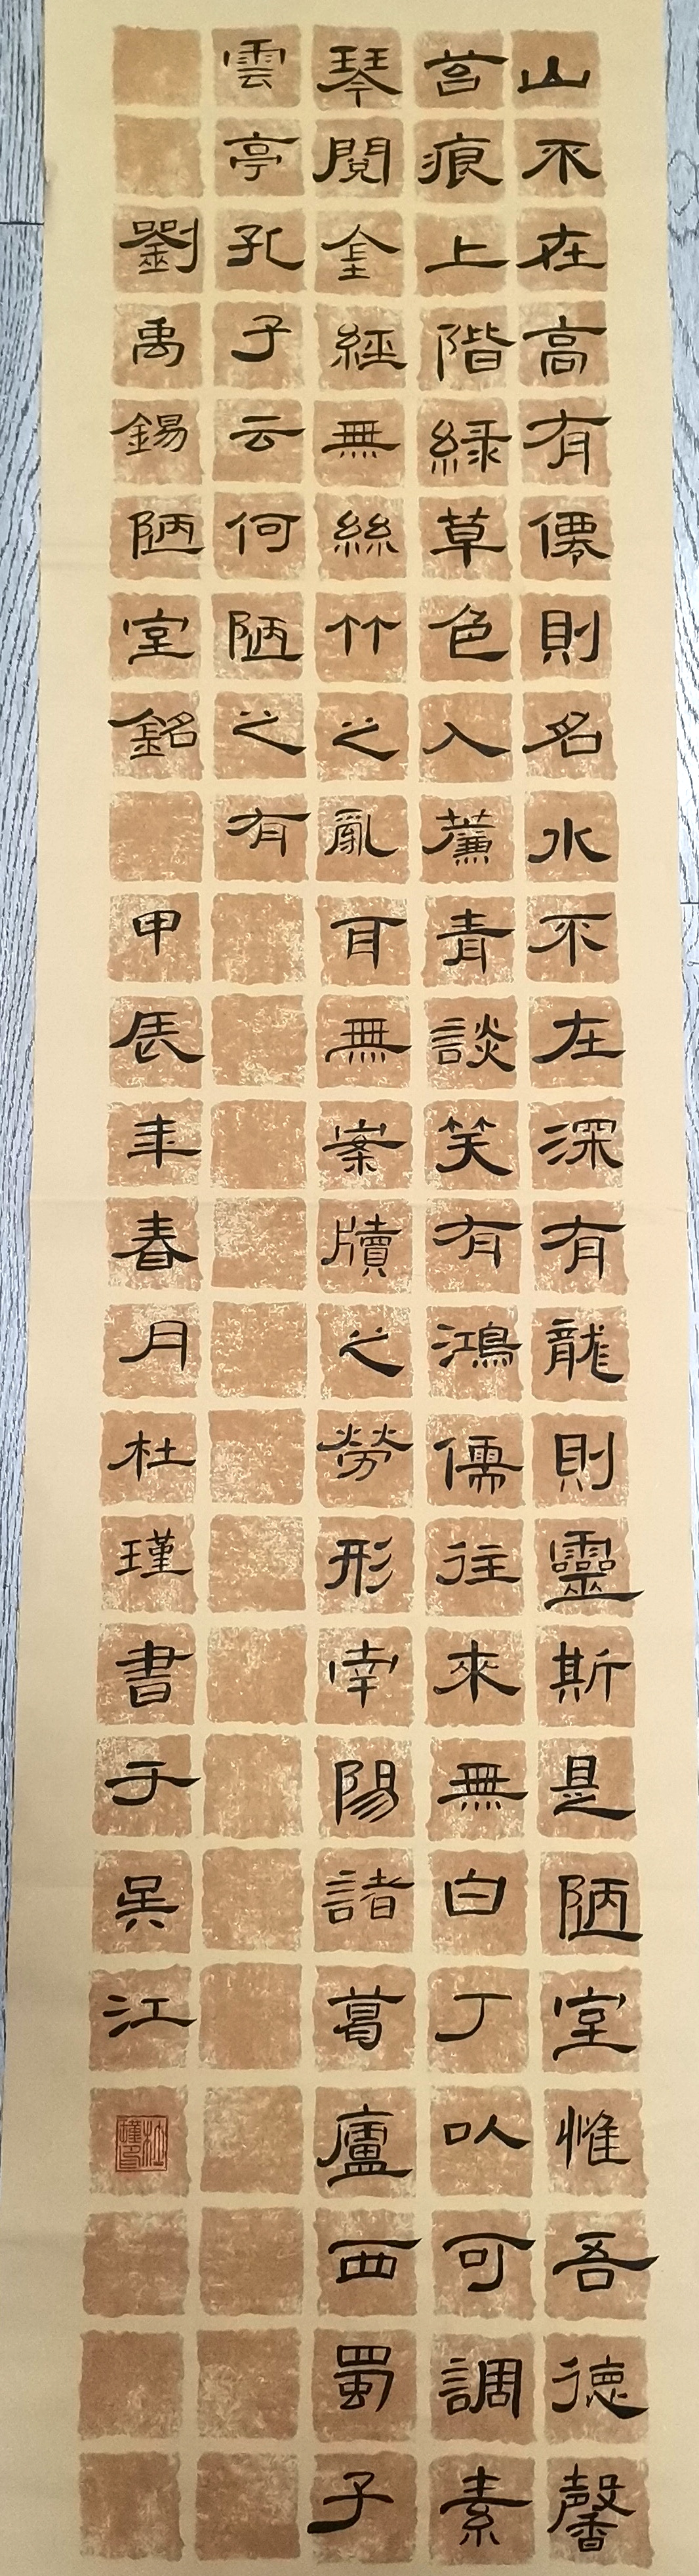 山不在高有僊則名水不在深有龍則靈斯是陋室惟吾德馨
苔痕上階緑草色入薰青談笑有鴻儒往來無白丁㕥可調素
琴閱金經無絲竹之亂耳無案牘之勞形南陽諸葛廬西蜀子
雲亭孔子云何陋之有
劉禹錫陋室銘 甲辰年春月杜瑾書于吴江
杜瑾印